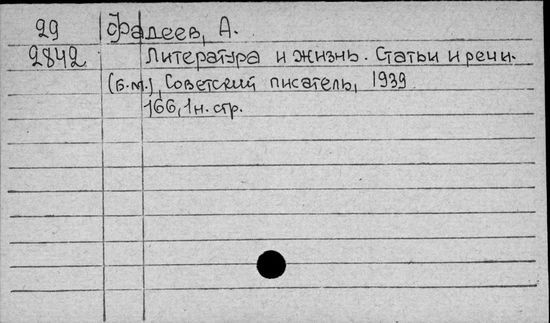 29 Фадеев, А.
2842 Литература и жизнь. Статьи и речи.
(Б.м.), Советский писатель, 1939
166, 1 н. стр.